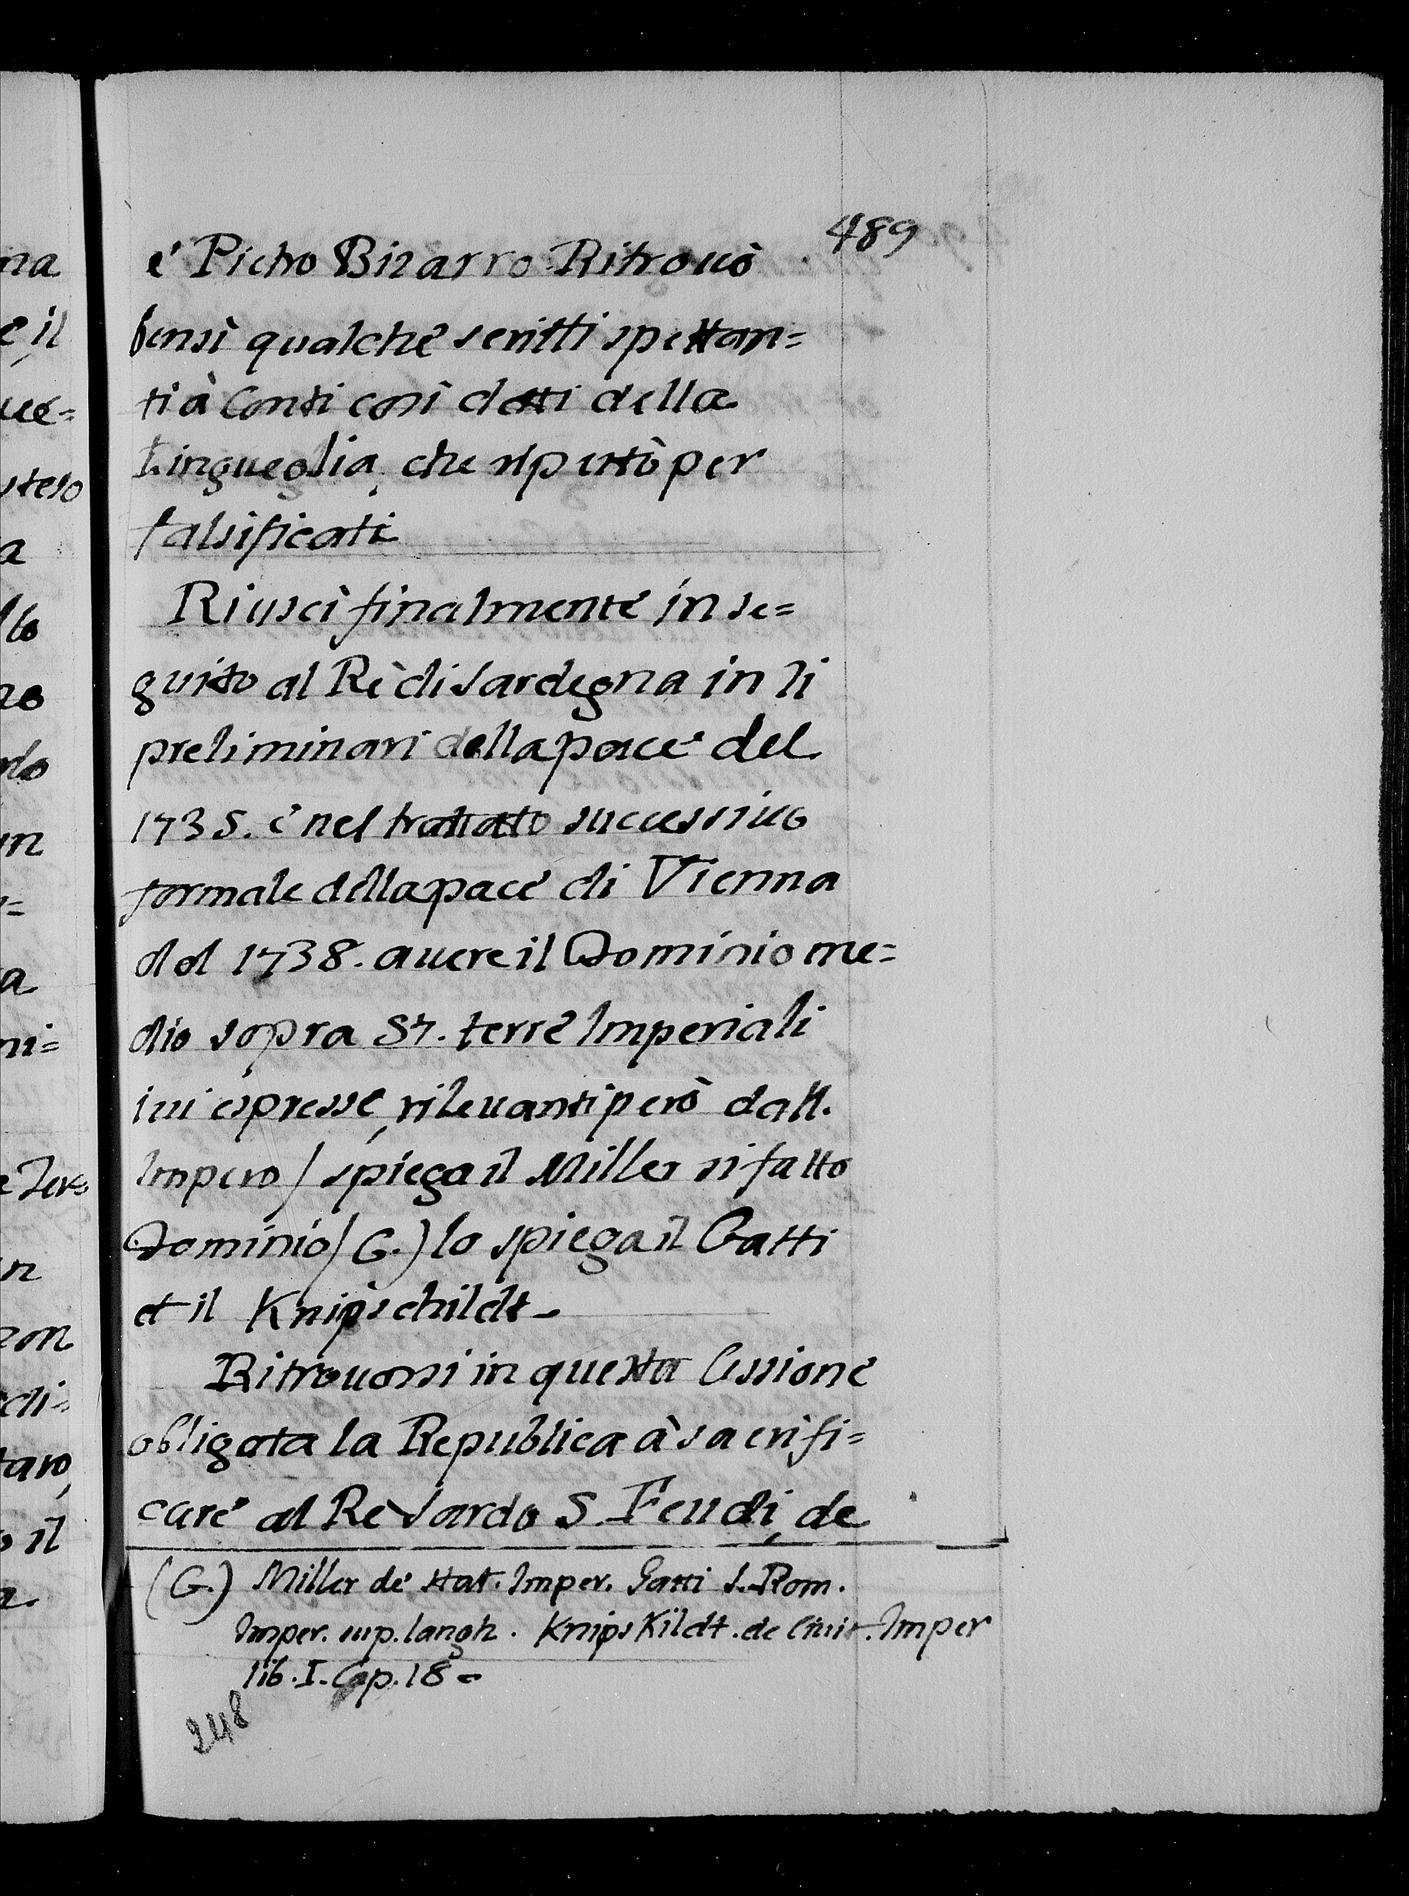 489
e' Pietro Bizarro Ritrouò
bensì qualche scritti spettan=
ti à Conti così detti della
Lingueglia, che riputò per
falsificati
Riuscì finalmente in se=
guito al Rè di Sardegna in li
preliminari della pace del
1735. e' nel trattato successiuo
formale della pace di Vienna
del 1738. auere il Dominio me=
dio sopra 57. terre Imperiali
iui espresse, rileuanti però dall.
Impero / spiega il Miller sifatto
Dominio / (G.) lo spiega il Gatti
et il Knipschildt -
Ritrouossi in questa Cessione
obligata la Republica à sacrifi=
care al Rè Sardo 5. Feudi, de
(G.) Miller de stat. Imper. Gatti S. Rom.
Imper. sup. langh. KnipsKildt. de Ciuit. Imper
lib. I. Cap. 18 -
248
na
e il
uee=
steso
a
llo
no
rlo
un
a
ni=
n
non
edi=
taro,
o il
a